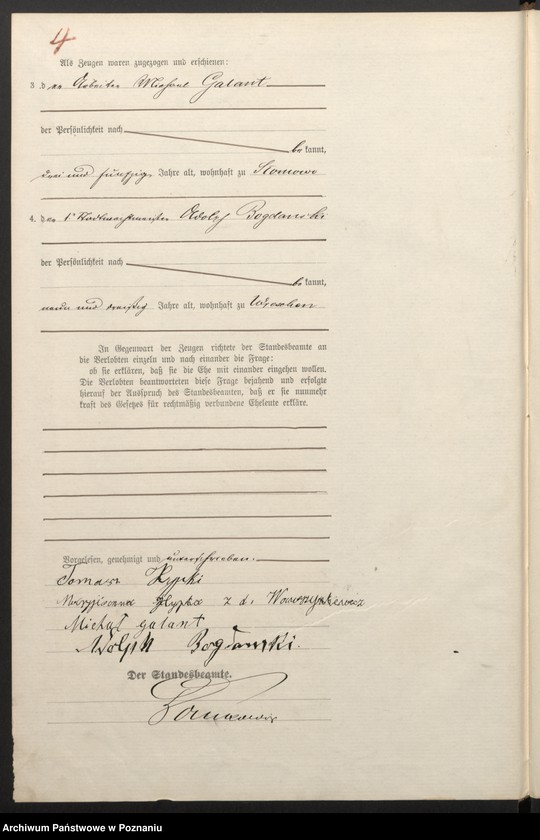 4
Als Zeugen waren zugezogen und erschienen:
3. der Arbeiter Michael Galant
der Persönlichkeit nach
bekannt,
drei und fünfzig Jahre alt, wohnhaft zu
4. der Adolf Bogdanski
der Persönlichkeit nach
bekannt,
neun und dreißig Jahre alt, wohnhaft zu Wreschen
In Gegenwart der Zeugen richtete der Standesbeamte an
die Verlobten einzeln und nach einander die Frage:
ob sie erklären, daß sie die Ehe mit einander eingehen wollen.
Die Verlobten beantworteten diese Frage bejahend und erfolgte
hierauf der Ausspruch des Standesbeamten, daß er sie nunmehr
kraft des Gesetzes für rechtmäßig verbundene Eheleute erkläre.
Vorgelesen, genehmigt und unterschrieben.
Tomasz
z d.
Michał galant
Adolph Bogdanski.
Der Standesbeamte.
Archiwum Państwowe w Poznaniu